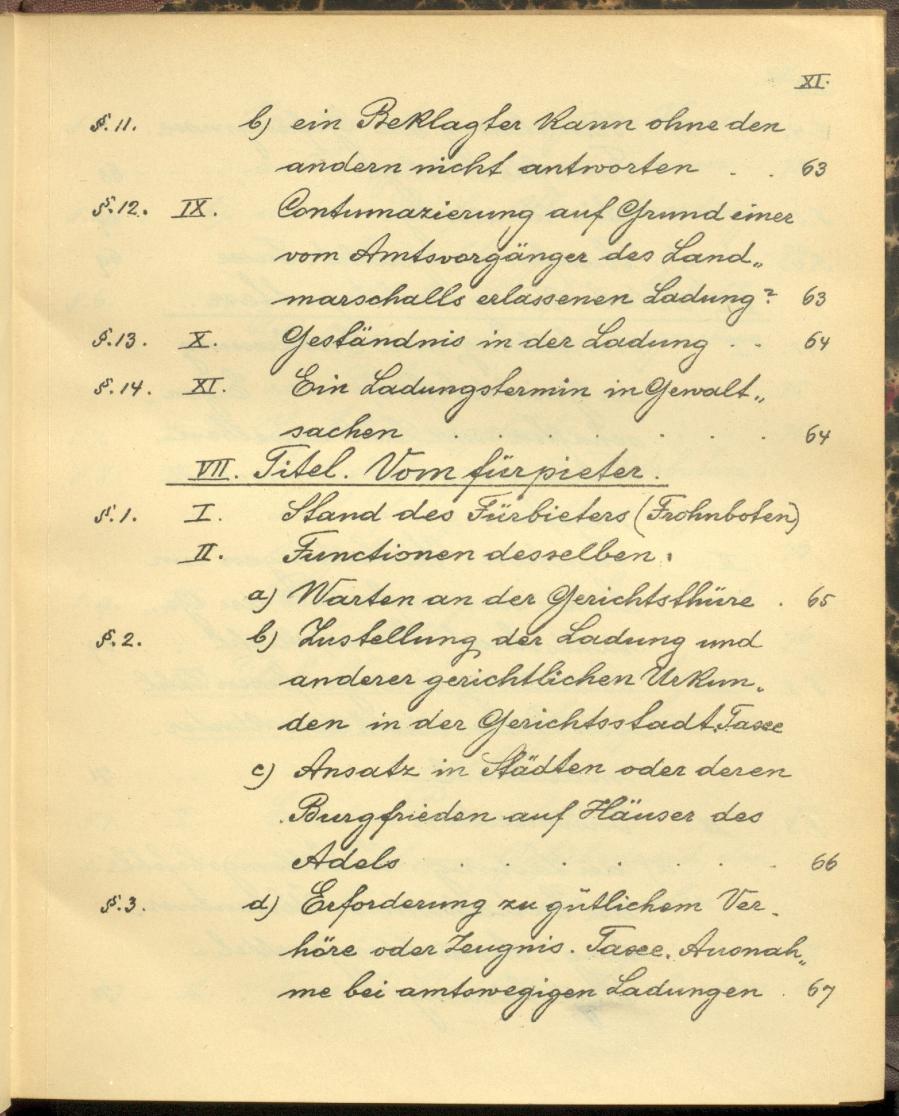 XI.
§. 11. b) ein Beklagter kann ohne den
andern nicht antworten . . 63
§. 12. IX. Contumazierung auf Grund einer
vom Amtsvorgänger des Land„
marschalls erlassenen Ladung? 63
§. 13. X. Geständnis in der Ladung . . 64
§. 14. XI. Ein Ladungstermin in Gewalt„
sachen . . . . . . . 64
VII. Titel. Vom fürpieter.
§. 1. I. Stand des Fürbieters (Frohnboten)
II. Functionen desselben.
a) Warten an der Gerichtsthüre . 65
§. 2. b) Zustellung der Ladung und
anderer gerichtlichen Urkun„
den in der Gerichtsstadt. Taxe
c) Ansatz in Städten oder deren
Burgfrieden auf Häuser des
Adels . . . . . . . 66
§. 3. d) Erforderung zu gütlichem Ver„
höre oder Zeugnis. Taxe. Ausnah„
me bei amtswegigen Ladungen . 67